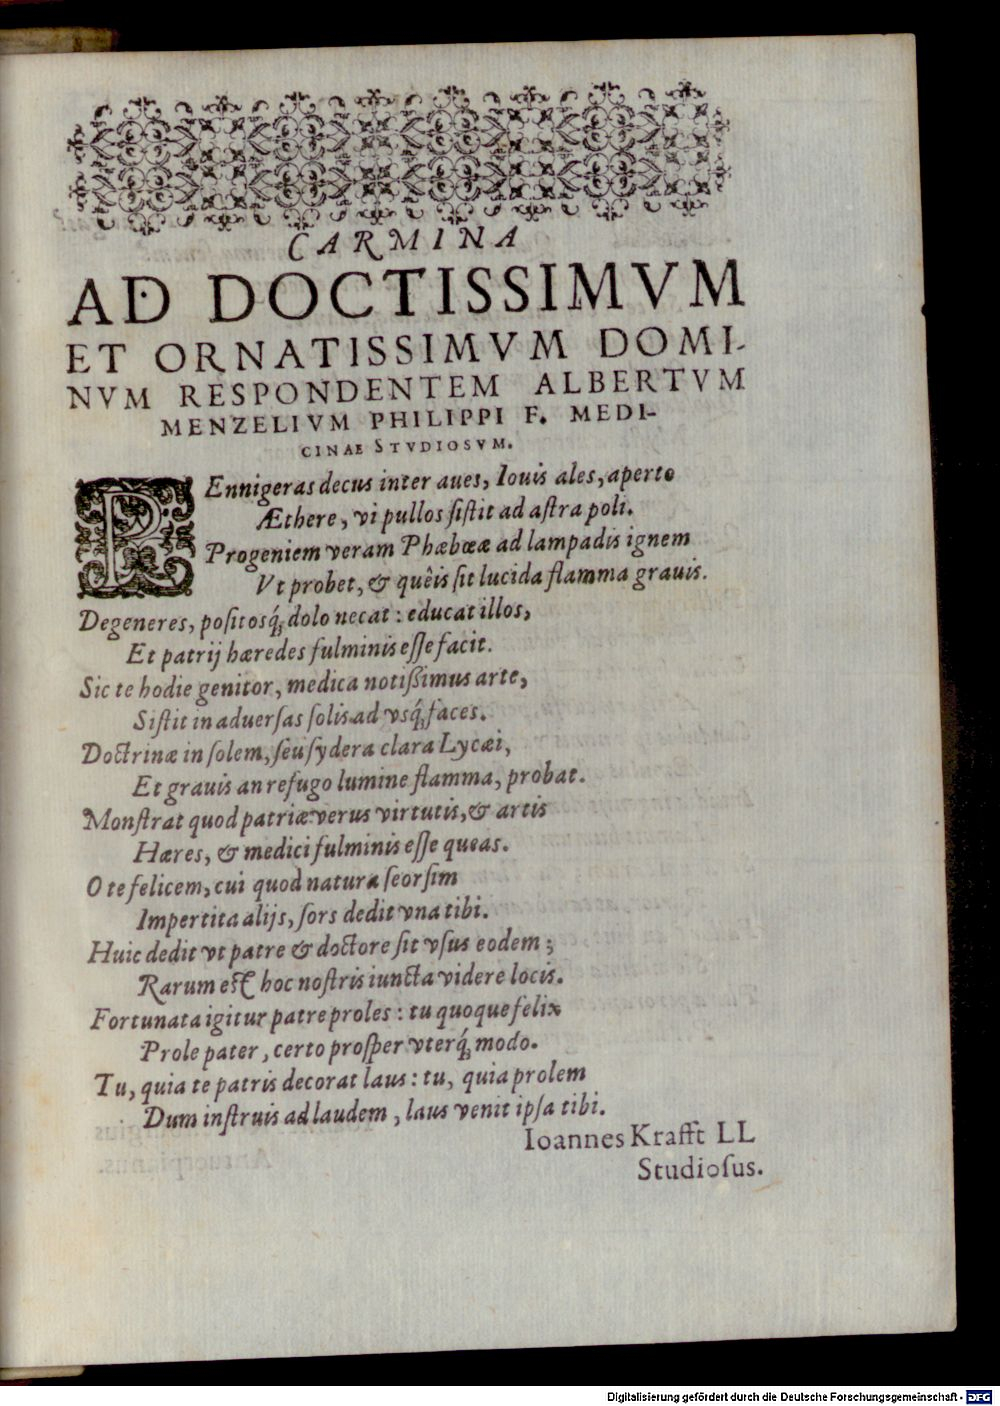 CARMINA
AD DOCTISSIMVM
ET ORNATISSIMVM DOMI-
NVM RESPONDENTEM ALBERTVM
MENZELIVM PHILIPPI F. MEDI-
CINAE STVDIOSVM.
PEnnigeras decus inter aues, Iouis ales, aperto
Æthere, vi pullos ſiſtit ad aſtra poli.
Progeniem veram Phæbææ ad lampadis ignem
Vt probet, & quêis ſit lucida flamma grauis.
Degeneres, poſitosq́; dolo necat: educat illos,
Et patrij hæredes fulminis eſſe facit.
Sic te hodie genitor, medica notiſsimus arte,
Siſtit in aduerſas ſolis ad vſq́; faces.
Doctrinæ in ſolem, ſeu ſydera clara Lycæi,
Et grauis an refugo lumine flamma, probat.
Monſtrat quod patriæ verus virtutis, & artis
Hæres, & medici fulminis eſſe queas.
O te felicem, cui quod natura ſeorſim
Impertita alijs, ſors dedit vna tibi.
Huic dedit vt patre & doctore ſit vſus eodem;
Rarum eſt hoc noſtris iuncta videre locis.
Fortunata igitur patre proles: tu quoque felix
Prole pater, certo proſper vterq́; modo.
Tu, quia te patris decorat laus: tu, quia prolem
Dum inſtruis ad laudem, laus venit ipſa tibi.
Ioannes Krafft LL
Studioſus.
Digitalisierung gefördert durch die Deutsche Forschungsgemeinschaft - DFG